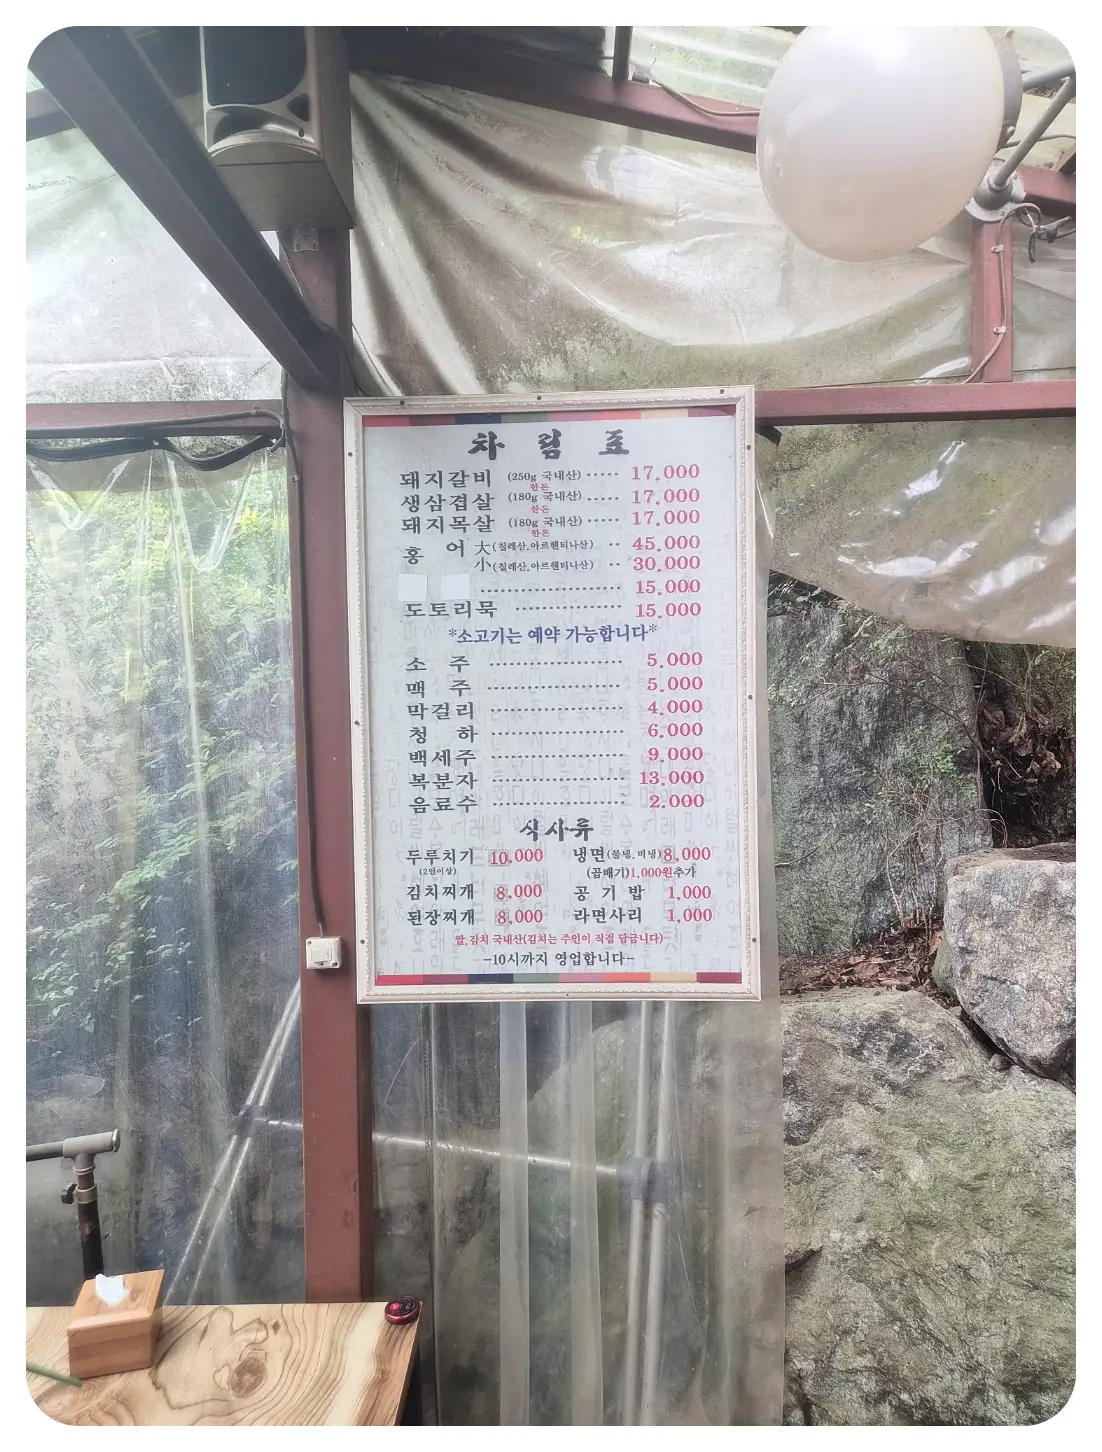 차림표
돼지갈비 (250g 국내산) ····· 17.000
한돈
생삼겹살 (180g 국내산) ····· 17.000
한돈
돼지목살 (180g 국내산) ····· 17.000
한돈
홍 어 大(칠레산.아르헨티나산) ·· 45.000
小(칠레산.아르헨티나산) ·· 30.000
····················· 15.000
도토리묵 ················ 15.000
*소고기는 예약 가능합니다*
소 주 ···················· 5.000
맥 주 ···················· 5.000
막걸리 ···················· 4.000
청 하 ···················· 6.000
백세주 ···················· 9.000
복분자 ···················· 13.000
음료수 ···················· 2.000
식사류
두루치기 10.000 냉면(물냉.비냉) 8.000
(2인이상) (곱배기)1.000원추가
김치찌개 8.000 공 기 밥 1.000
된장찌개 8.000 라면사리 1.000
쌀.김치 국내산(김치는 주인이 직접 담급니다)
-10시까지 영업합니다-